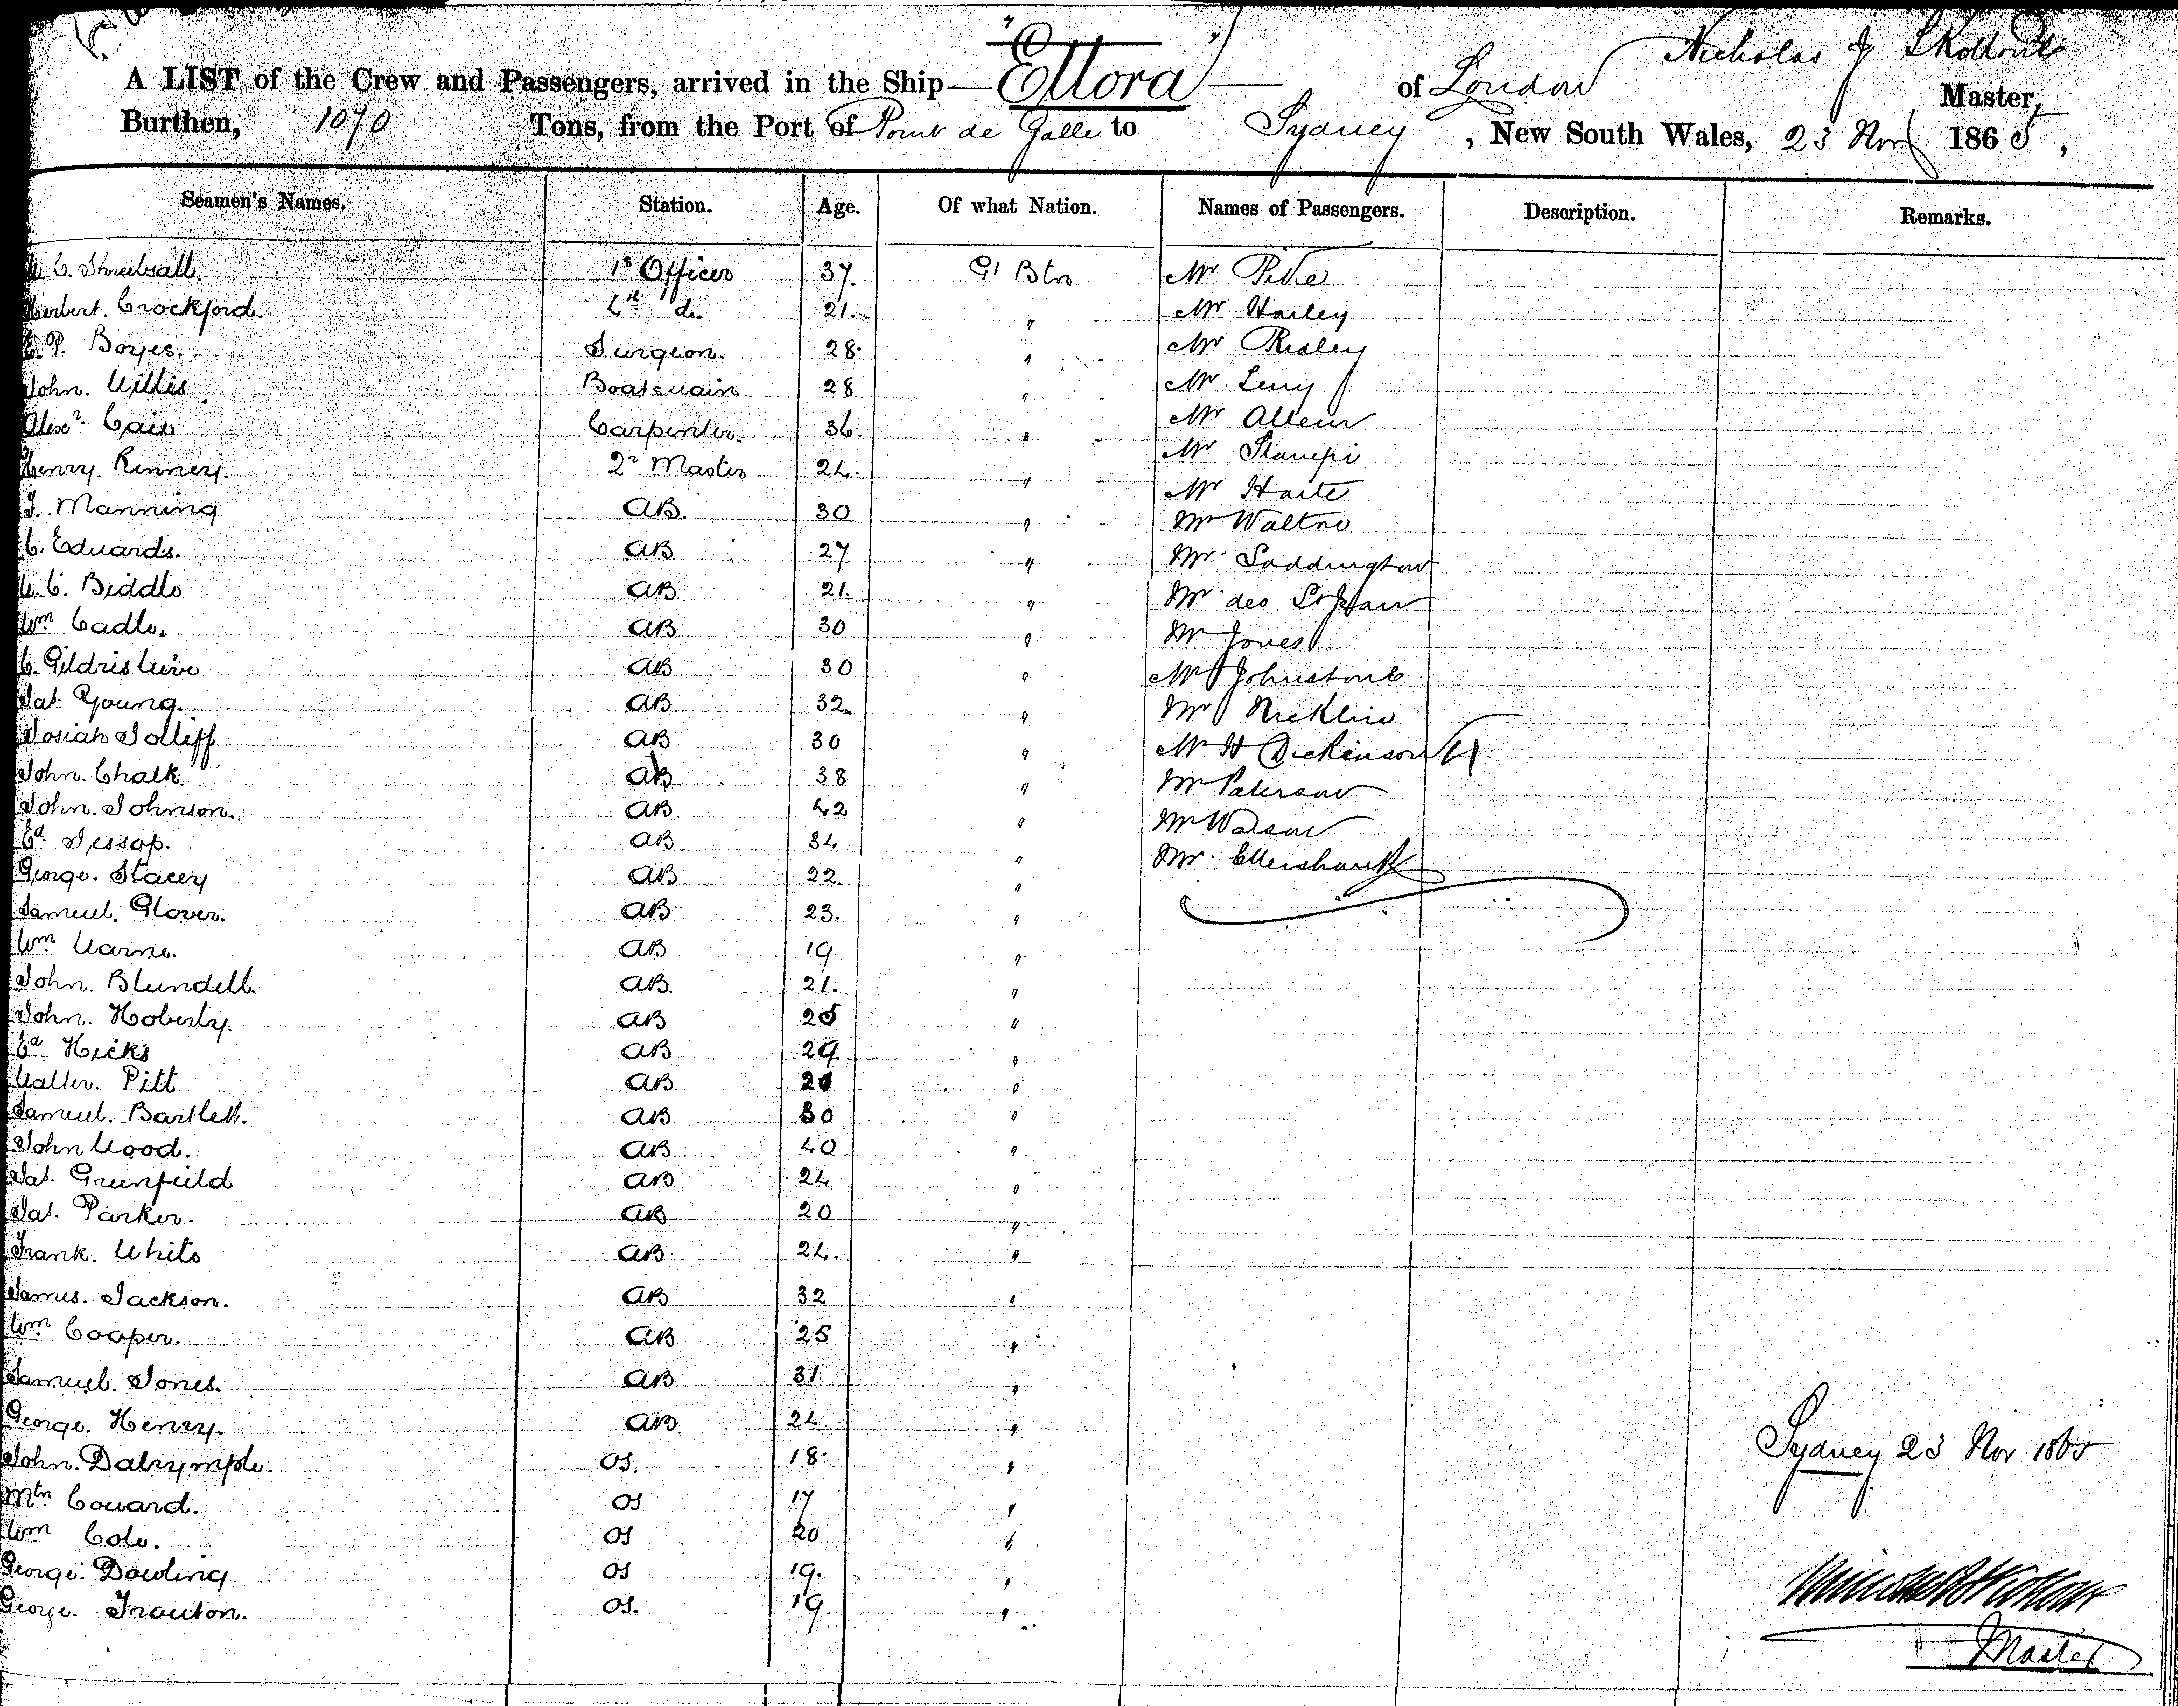 "Ellora"
Nicholas J Skottowe
A LIST of the Crew and Passengers, arrived in the Ship of London Master,
Burthen, 1070 Tons, from the Port of Point de Galle to Sydney, New South Wales, 23 Nov 1865,
Seamen's Names. Station. Age. Of what Nation. Names of Passengers. Description. Remarks.
1st Officer 37. Gt Btn Mr Pike
Herbert. Crockford. 4th do. 21. " Mr Harley
Boyes. Surgeon. 28. " Mr Risley
John. Willis Boatswain 28 " Mr Levy
Alexr. Cain Carpenter. 36. " Mr
Henry. Kinnery. 2nd Master 24. " Mr
J. Manning AB. 30 " Mr Harte
C. Edwards. AB 27 " Mr Walton
C. Biddle AB 21. " Mr Saddington
Wm Cadle. AB 30 " Mr des
C. AB 30 " Mr Jones
Jas. Young. AB 32. " Mr Johnstone
Josiah Jolliff AB 30 " Mr Nicklin
John. Chalk AB 38 " Mr H Dickinson
John. Johnson. AB 42 " Mr Paterson
Ed. Jessop. AB 34 " Mr Watson
George. Stacey AB 22. " Mr. Ellershank
Samuel. Glover. AB 23. "
Wm Warne. AB 19 "
John. Blundell. AB 21. "
John. Hoberly. AB 25 "
Ed. Hicks AB 29 "
Walter. Pitt AB "
Samuel. Bartlett. AB 30 "
John Wood. AB 40 "
Jas. Greenfield AB 24 "
Jas. Parker. AB 20 "
Frank. White AB 24. "
James. Jackson. AB 32 "
Wm Cooper. AB 25 "
Samuel. Jones. AB 31 "
George. Henry. AB 24 "
John. Dalrymple. OS. 18. "
Mtn Coward. OS 17 "
Wm Cole. OS 20 "
George. Dowling OS 19. "
George. Trouton. OS. 19 "
Sydney 23 Nov 1865
Master